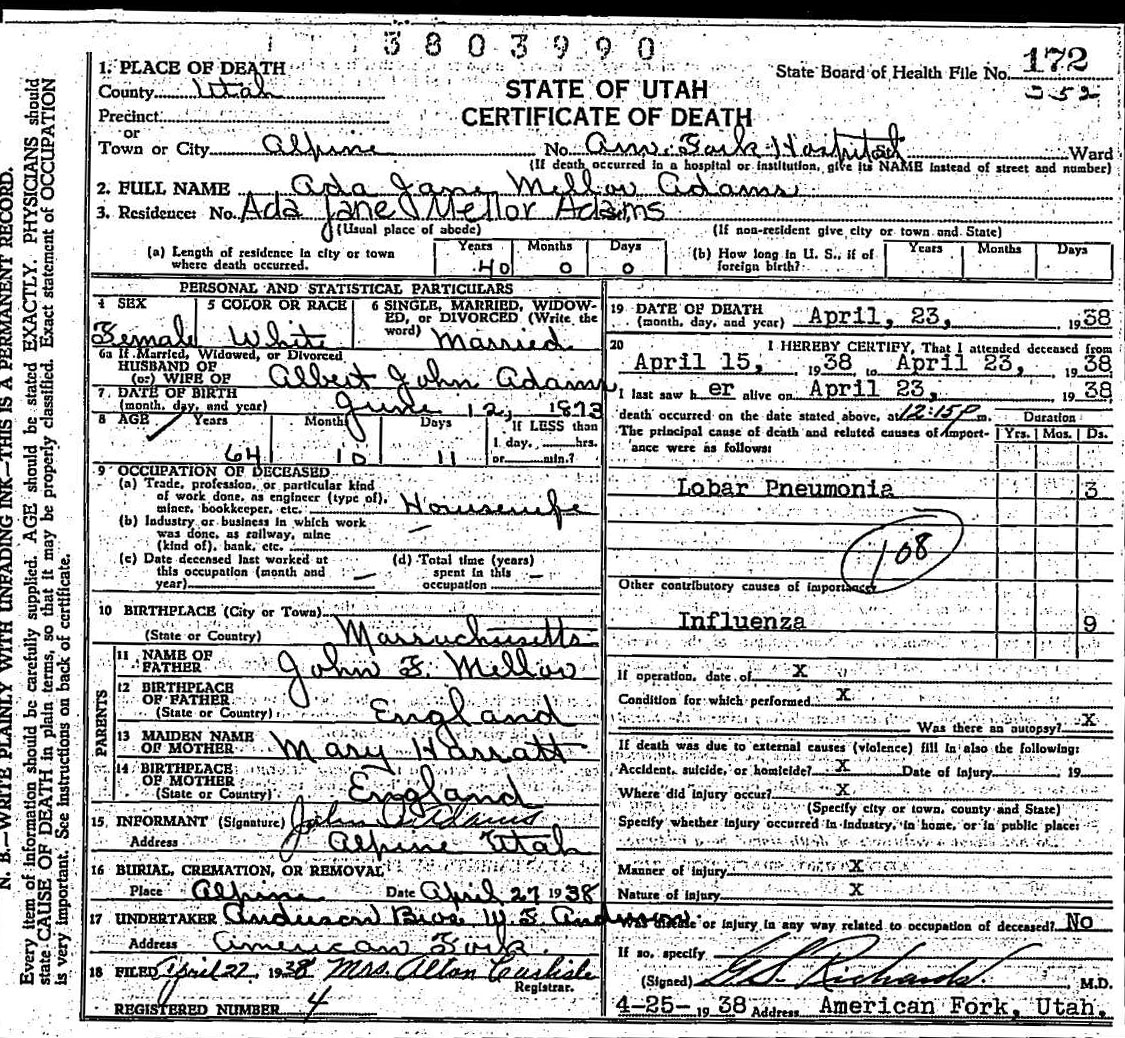 3803990
State Board of Health File No. 172
352
1. PLACE OF DEATH
County Utah
STATE OF UTAH
CERTIFICATE OF DEATH
Precinct
or
Town or City Alpine No. Am. Fork Hospital St. Ward
(If death occurred in a hospital or institution, give its NAME instead of street and number)
2. FULL NAME Ada Jane Mellor Adams
3. Residence: No. Ada Jane Mellor Adams
(Usual place of abode) (If non-resident give city or town and State)
(a) Length of residence in city or town where death occurred. Years 40 Months 0 Days 0
(b) How long in U. S., if of foreign birth? Years Months Days
PERSONAL AND STATISTICAL PARTICULARS
4 SEX Female
5 COLOR OR RACE White
6 SINGLE, MARRIED, WIDOWED, or DIVORCED (Write the word) Married
6a If Married, Widowed, or Divorced
HUSBAND OF
(or) WIFE OF Albert John Adams
7 DATE OF BIRTH
(month, day, and year) June 12, 1873
8 AGE Years 64 Months 10 Days 11 If LESS than 1 day, hrs. or min.?
9 OCCUPATION OF DECEASED
(a) Trade, profession, or particular kind of work done, as engineer (type of), miner, bookkeeper, etc. Housewife
(b) Industry or business in which work was done, as railway, mine (kind of), bank, etc. —
(c) Date deceased last worked at this occupation (month and year) —
(d) Total time (years) spent in this occupation —
10 BIRTHPLACE (City or Town)
(State or Country) Massachusetts
PARENTS
11 NAME OF FATHER John F. Mellor
12 BIRTHPLACE OF FATHER
(State or Country) England
13 MAIDEN NAME OF MOTHER Mary Harratt
14 BIRTHPLACE OF MOTHER
(State or Country) England
15. INFORMANT (Signature) John A. Adams
Address Alpine Utah
16 BURIAL, CREMATION, OR REMOVAL
Place Alpine Date April 27 1938
17 UNDERTAKER Anderson Bros W. S. Anderson
Address American Fork
18 FILED April 27, 1938 Mrs. Alton Carlisle
Registrar.
REGISTERED NUMBER 4
19 DATE OF DEATH
(month, day, and year) April, 23, 1938
20 I HEREBY CERTIFY, That I attended deceased from
April 15, 1938 to April 23, 1938
I last saw her alive on April 23, 1938
death occurred on the date stated above, at 12:15 P m. Duration
The principal cause of death and related causes of importance were as follows: Yrs. Mos. Ds.
Lobar Pneumonia 3
108
Other contributory causes of importance:
Influenza 9
If operation, date of X
Condition for which performed X
Was there an autopsy? X
If death was due to external causes (violence) fill in also the following:
Accident, suicide, or homicide? X Date of injury 19
Where did injury occur? X
(Specify city or town, county and State)
Specify whether injury occurred in industry, in home, or in public place:
Manner of injury X
Nature of injury X
Was disease or injury in any way related to occupation of deceased? No
If so, specify
(Signed) G. S. Richards M.D.
4-25-1938 Address American Fork, Utah.
N. B.—WRITE PLAINLY WITH UNFADING INK—THIS IS A PERMANENT RECORD.
Every item of information should be carefully supplied. AGE should be stated EXACTLY. PHYSICIANS should
state CAUSE OF DEATH in plain terms, so that it may be properly classified. Exact statement of OCCUPATION
is very important. See instructions on back of certificate.